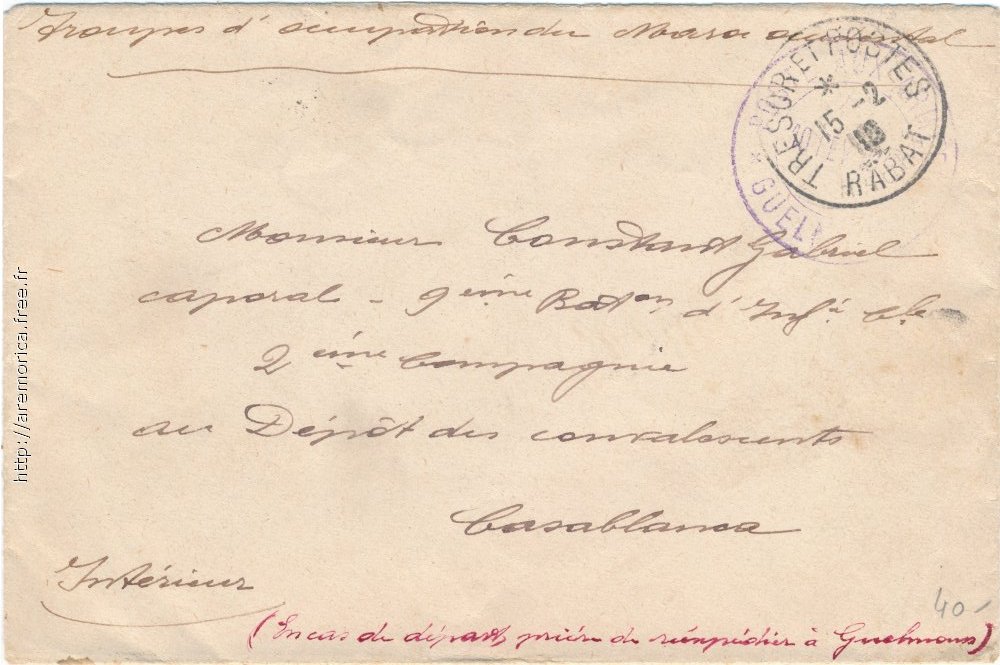 Troupes d'occupation du Maroc occidental
TRESOR ET POSTES
* 15 -2
RABAT
* GUEL
Monsieur Constant Gabriel
caporal - 9ème Baton d'Infie Cle
2ème Compagnie
au Dépôt des convalescents
Casablanca
Intérieur
(En cas de départ, prière de réexpédier à Guelmous)
40-
http://aremorica.free.fr